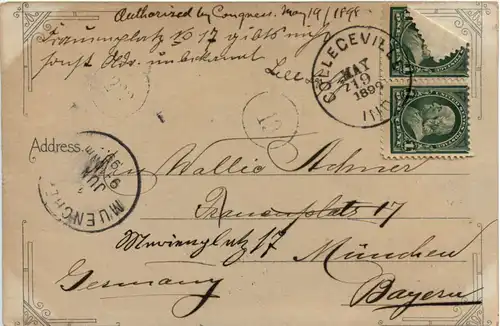 Authorized by Congress. May 19/1898
Frauenplatz No 17 gibts nicht
sonst Adr. unbekannt
COLLEGEVILLE
MAY
19
1899
MUENCHEN
JUN
99
Address.
Herrn Wallie Achner
Frauenplatz
Marienplatz 17
München
Germany
Bayern